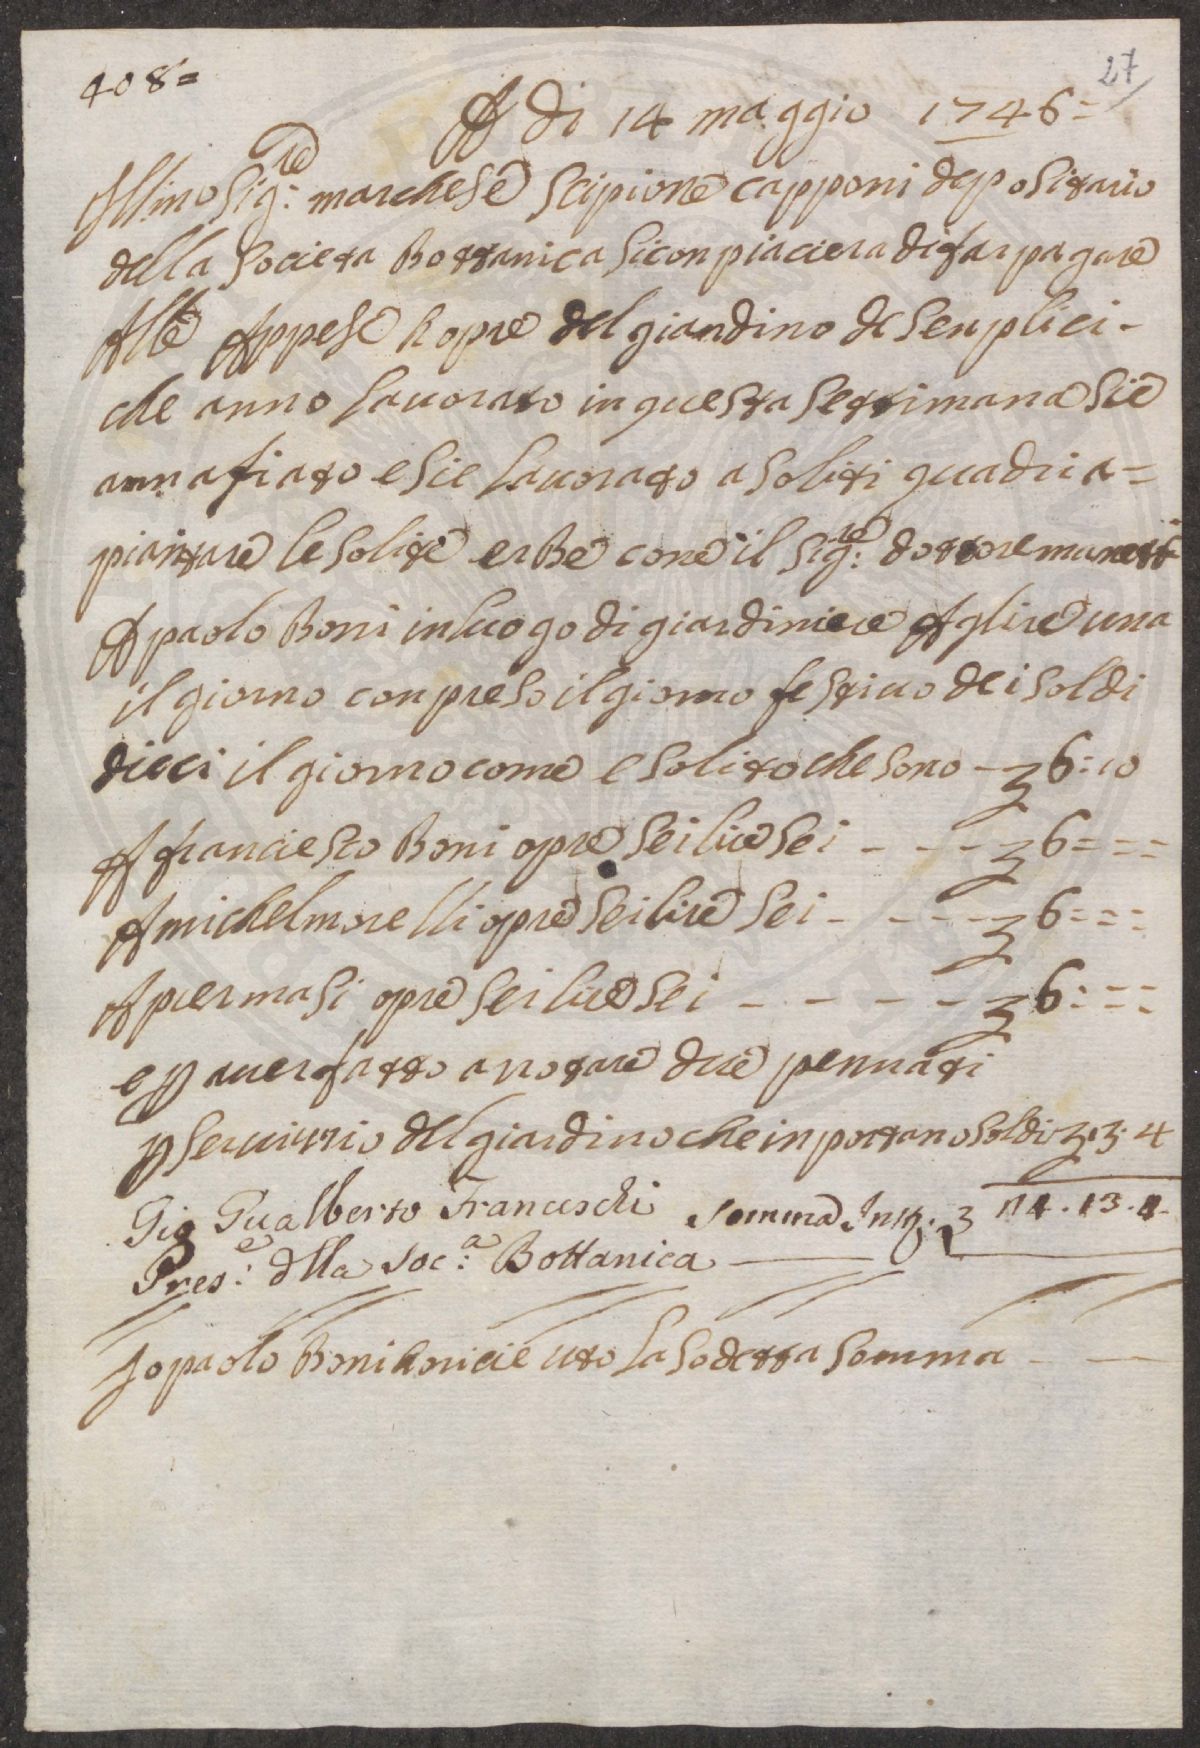 408=
27
A di 14 maggio 1746=
Ill:mo Sig:re marchese Scipione capponi depositario
della Societa Bottanica Siconpiaciera difar pagare
Alle Appese hopre del giardino de Senplici-
che anno lauorato in questa settimana Sie
annafiato e Sie lauorato a Soliti quadri a=
piantare le Solite erbe cone il Sig:re dottore manetti
A paolo Boni inluogo di giardiniere A glire una
il giorno conpreso il giorno festiuo dei Soldi
dieci il giorno come e Solito che sono - 36:10
A franciesco Boni opre Sei lire Sei - - - - 36= = =
A michel morelli opre Sei lire Sei - - - - 36= = =
A pier masi opre Sei lire Sei - - - - - 36: = =
e p auer fatto arotare due pennati
p Seruitio del giardino che inportano Soldi 3.3.4
Gio Gualberto Franceschi Somma In tt. 3 24.13.4
Pres:e d'lla Soc:a Bottanica
Io paolo Boni horicieuto la Sodetta Somma - -